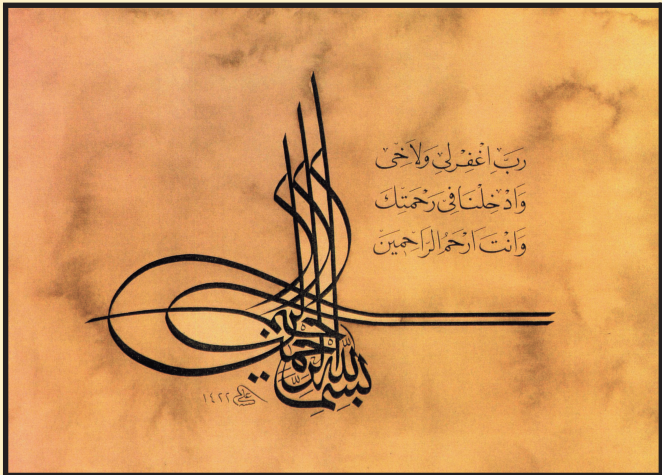 رَبِّ اغْفِرْلِي وَلِاَخِي
وَاَدْخِلْنَا فِي رَحْمَتِكَ
وَاَنْتَ اَرْحَمُ الرَّاحِمِينَ
بسم الله الرحمن الرحيم
علي ١٤٢٢